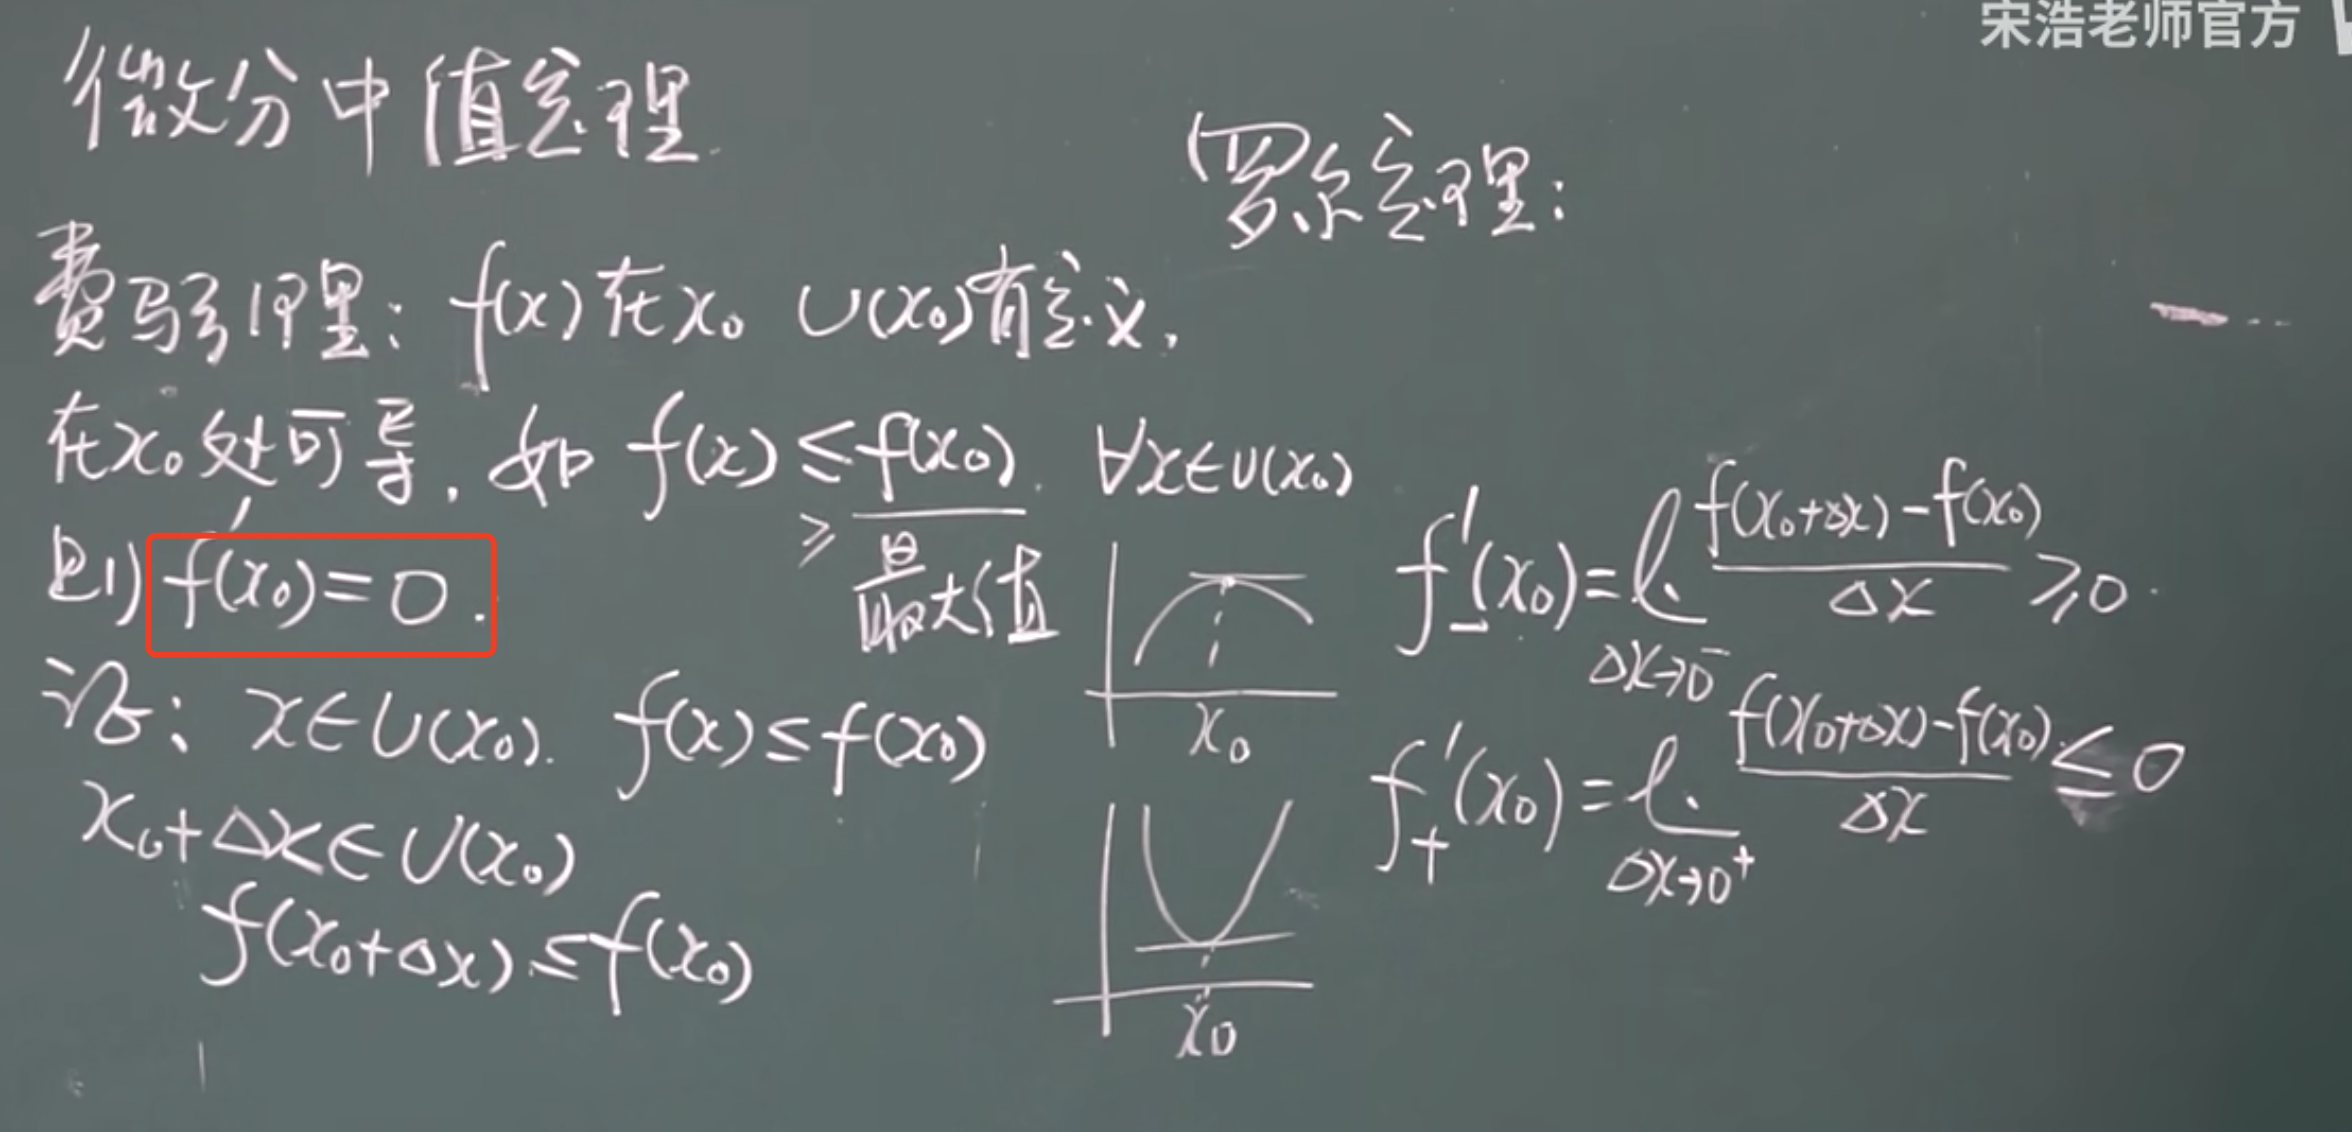 宋浩老师官方
微分中值定理
费马引理：f(x)在x₀ U(x₀)有定义，
在x₀处可导，如 f(x)≤f(x₀). ∀x∈U(x₀)
≥
最大值
则 f′(x₀)=0.
证：x∈U(x₀). f(x)≤f(x₀)
x₀+Δx∈U(x₀)
f(x₀+Δx)≤f(x₀)
x₀
x₀
罗尔定理：
f′₋(x₀)=l. Δx→0⁻ f(x₀+Δx)-f(x₀) / Δx ≥0.
f′₊(x₀)=l. Δx→0⁺ f(x₀+Δx)-f(x₀) / Δx ≤0